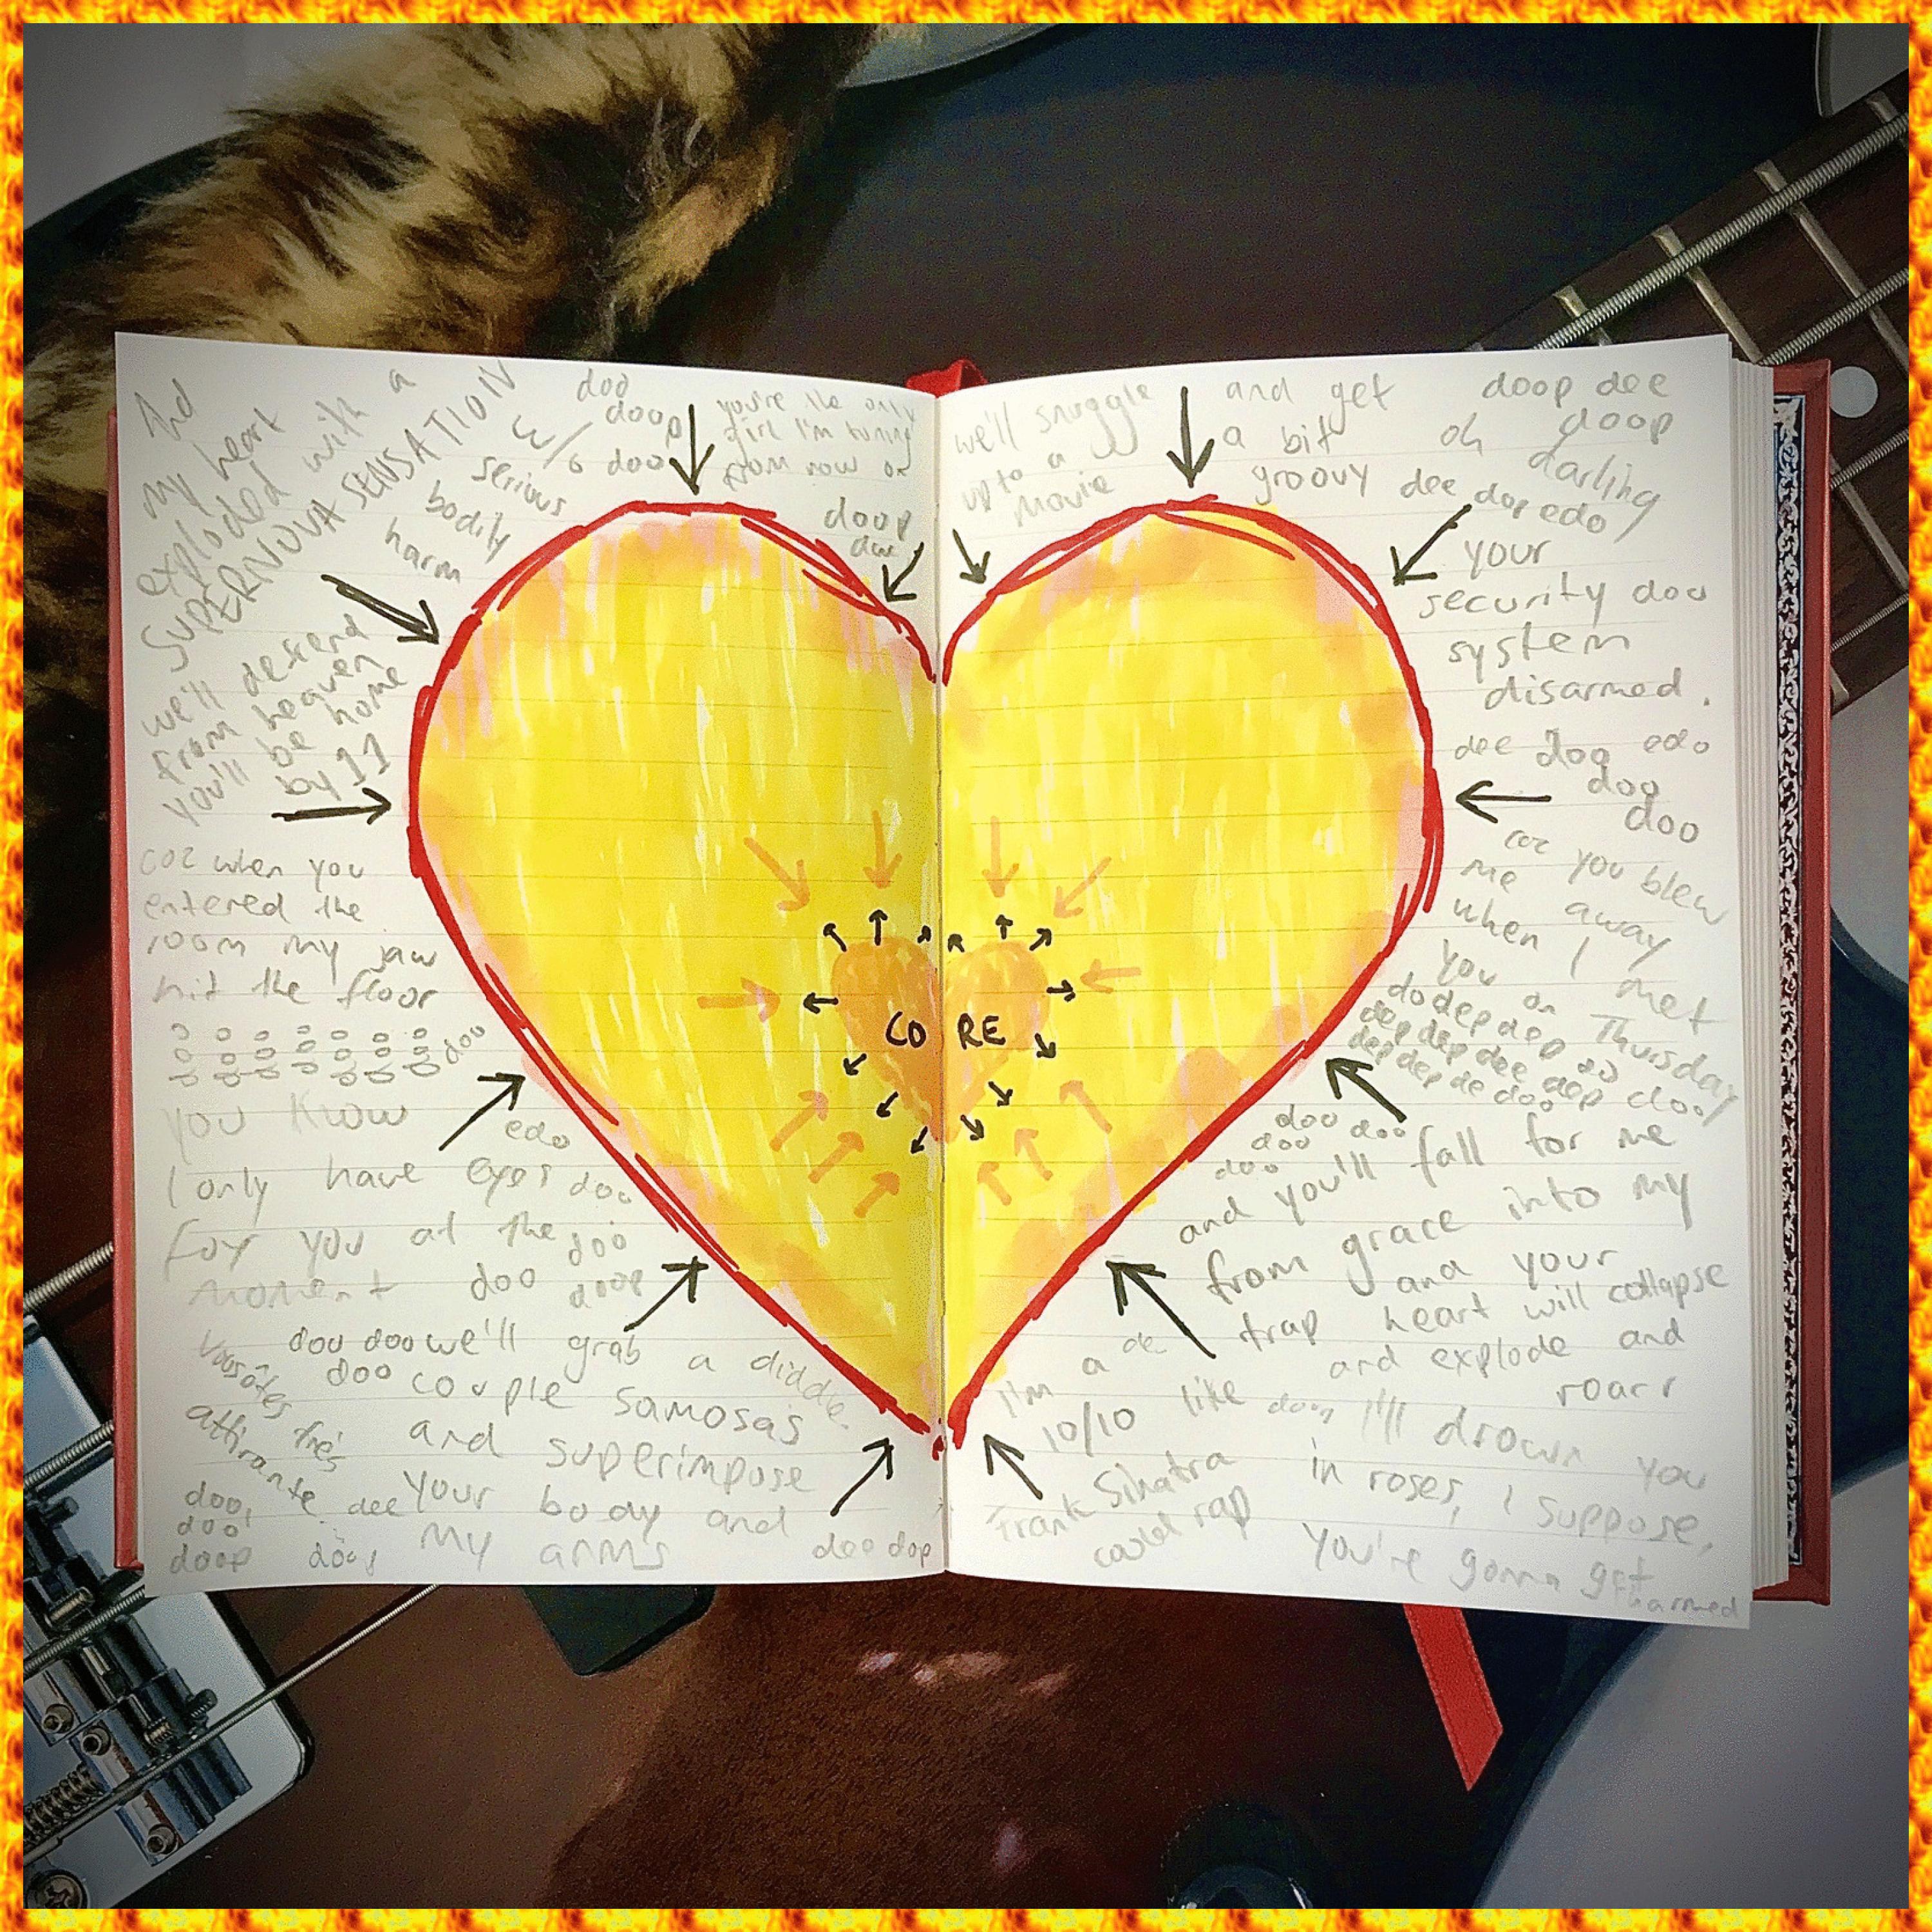 And
my heart
exploded with a
SUPERNOVA SENSATION
w/
serious
bodily
harm
doo
doop
doo
you're the only
girl I'm tuning
from now on
doop
dee
we'll descend
from heaven
you'll be home
by 11
coz when you
entered the
room my jaw
hit the floor
doo
you know
edo
I only have eyes
doo
for you at the
doo
moment doo
doop
doo doo we'll grab a
doo couple samosas
and superimpose
your body and
my arms
diddle
attirante
doo
doo
doop
dee
doo
dee dop
CO RE
we'll snuggle
up to a
movie
and get
a bit
groovy
doop dee
doop
oh
darling
dee dop edo
your
security doo
system
disarmed.
dee doo edo
doo
doo
coz you blew
me away
when I met
you on Thursday
do dep dep
dep dep dee dep
dep dep de doo
doo doo
doo doo
doo
and you'll fall for me
from grace into my
trap
and your
heart will collapse
and explode and
roarr
de
I'm a
10/10 like
Frank Sinatra
could rap
I'll drown you
in roses, I suppose,
you're gonna get
harmed